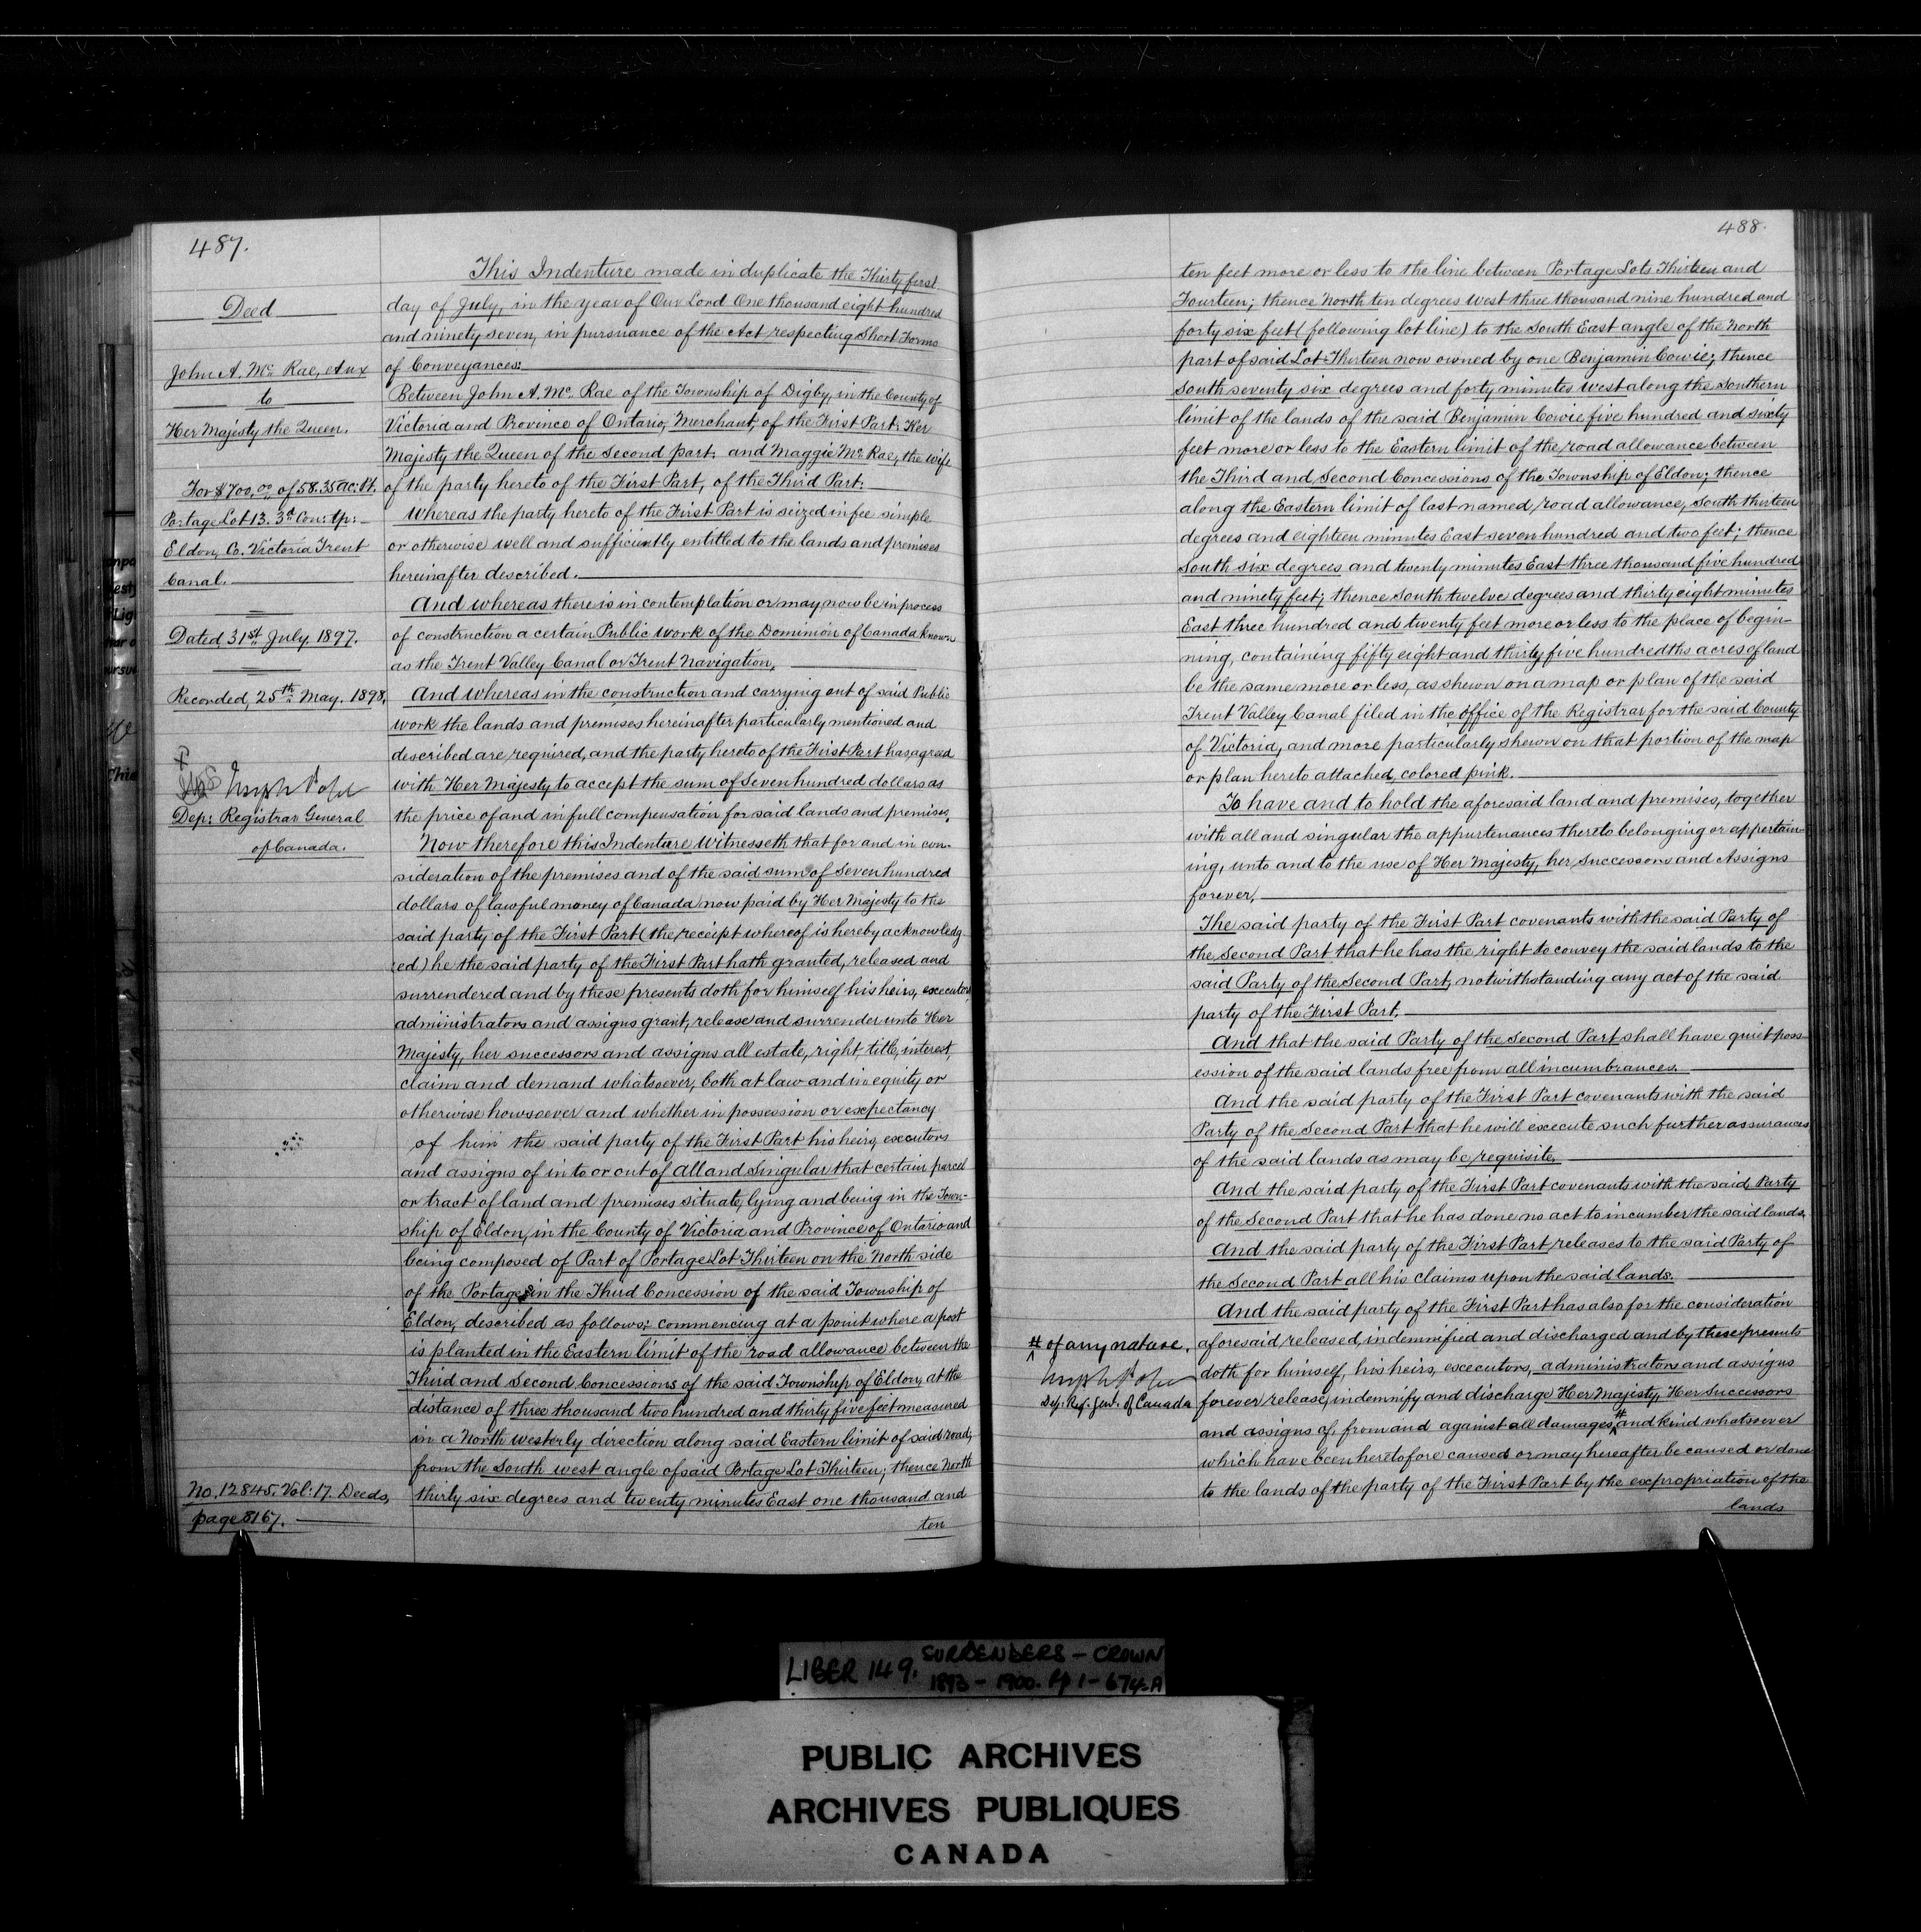 487.
Deed
John A. Mc Rae, et ux
to
Her Majesty the Queen.
For $700.00 of 58.35 ac: Pt.
Portage Lot 13. 3rd Con: tp:
Eldon, Co. Victoria Trent
Canal.
Dated 31st July, 1897.
Recorded, 25th May. 1898.
Joseph Pope
Dep: Registrar General
of Canada.
No. 12845. Vol: 17. Deeds,
page 8167.
This Indenture made in duplicate the Thirty first
day of July, in the year of Our Lord One thousand eight hundred
and ninety seven, in pursuance of the Act respecting Short Forms
of Conveyances:
Between John A. Mc. Rae of the Township of Digby, in the County of
Victoria and Province of Ontario, Merchant, of the First Part: Her
Majesty the Queen of the Second part: and Maggie Mc Rae, the wife
of the party hereto of the First Part, of the Third Part:
Whereas the party hereto of the First Part is seized in fee simple
or otherwise well and sufficiently entitled to the lands and premises
hereinafter described.
And whereas there is in contemplation or may now be in process
of construction a certain Public Work of the Dominion of Canada known
as the Trent Valley Canal or Trent Navigation,
And whereas in the construction and carrying out of said Public
work the lands and premises hereinafter particularly mentioned and
described are required, and the party hereto of the First Part has agreed
with Her Majesty to accept the sum of Seven hundred dollars as
the price of and in full compensation for said lands and premises,
Now therefore this Indenture Witnesseth that for and in con-
sideration of the premises and of the said sum of Seven hundred
dollars of lawful money of Canada now paid by Her Majesty to the
said party of the First Part (the receipt whereof is hereby acknowledg-
ed) he the said party of the First Part hath granted, released and
surrendered and by these presents doth for himself his heirs, executors
administrators and assigns grant, release and surrender unto Her
Majesty, her successors and assigns all estate, right, title, interest,
claim and demand whatsoever, both at law and in equity or
otherwise howsoever and whether in possession or expectancy
of him the said party of the First Part his heirs, executors
and assigns of in to or out of All and Singular that certain parcel
or tract of land and premises situate, lying and being in the Town-
ship of Eldon, in the County of Victoria and Province of Ontario and
being composed of Part of Portage Lot Thirteen on the North side
of the Portage in the Third Concession of the said Township of
Eldon, described as follows: commencing at a point where a post
is planted in the Eastern limit of the road allowance between the
Third and Second Concessions of the said Township of Eldon, at the
distance of three thousand two hundred and thirty five feet measured
in a North westerly direction along said Eastern limit of said road,
from the South west angle of said Portage Lot Thirteen; thence North
thirty six degrees and twenty minutes East one thousand and
ten
488.
ten feet more or less to the line between Portage Lots Thirteen and
Fourteen; thence North ten degrees West three thousand nine hundred and
forty six feet (following lot line) to the South East angle of the North
part of said Lot Thirteen now owned by one Benjamin Cowie; thence
South seventy six degrees and forty minutes West along the Southern
limit of the lands of the said Benjamin Cowie five hundred and sixty
feet more or less to the Eastern limit of the road allowance between
the Third and Second Concessions of the Township of Eldon; thence
along the Eastern limit of last named road allowance, South thirteen
degrees and eighteen minutes East seven hundred and two feet; thence
South six degrees and twenty minutes East three thousand five hundred
and ninety feet; thence South twelve degrees and thirty eight minutes
East three hundred and twenty feet more or less to the place of begin-
ning, containing fifty eight and thirty five hundredths acres of land
be the same more or less, as shewn on a map or plan of the said
Trent Valley Canal filed in the office of the Registrar for the said County
of Victoria, and more particularly shewn on that portion of the map
or plan hereto attached, colored pink.
To have and to hold the aforesaid land and premises, together
with all and singular the appurtenances thereto belonging or appertain-
ing, unto and to the use of Her Majesty, her Successors and Assigns
forever,
The said party of the First Part covenants with the said Party of
the Second Part that he has the right to convey the said lands to the
said Party of the Second Part, notwithstanding any act of the said
party of the First Part,
And that the said Party of the Second Part shall have quiet poss-
ession of the said lands free from all incumbrances.
And the said party of the First Part covenants with the said
Party of the Second Part that he will execute such further assurances
of the said lands as may be requisite,
And the said party of the First Part covenants with the said Party
of the Second Part that he has done no act to incumber the said lands,
And the said party of the First Part releases to the said Party of
the Second Part all his claims upon the said lands.
And the said party of the First Part has also for the consideration
aforesaid released, indemnified and discharged and by these presents
doth for himself, his heirs, executors, administrators and assigns
forever release, indemnify and discharge Her Majesty, Her Successors
and assigns of, from and against all damages # and kind whatsoever
which have been heretofore caused or may hereafter be caused or done
to the lands of the party of the First Part by the expropriation of the
lands
# of any nature.
Joseph Pope
Dep: Reg: Gen: of Canada
LIBER 149. SURRENDERS - CROWN
1893 - 1900. Pp 1 - 674-A
PUBLIC ARCHIVES
ARCHIVES PUBLIQUES
CANADA